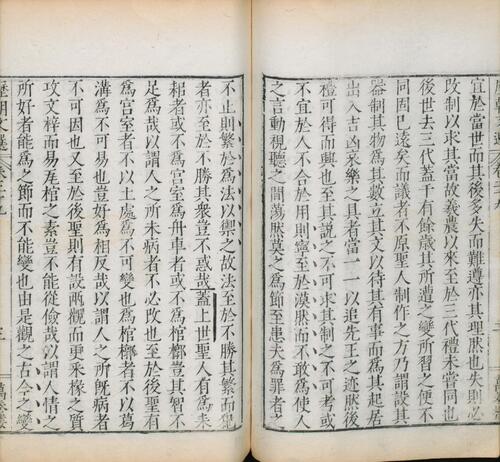 宜於世而其後多失而難遵亦其理然也失則必
改制以求其當故羲農以來至於三代禮未嘗同也
後世去三代蓋千有餘歲其所遭之變所習之便不
同固已遠矣而議者不原聖人制作之方乃謂設其
器制其物為其數立其文以待其有事而為其起居
出入吉凶哀樂之具者當一一以追先王之迹然後
禮可得而興也至其說之不可求其制之不可考或
不宜於人不合於用則寧至於漠然而不敢為使人
之言動視聽之間蕩然莫之為節至患夫為罪者之
不止則繁於為法以禦之故法至於不勝其繁而犯
者亦至於不勝其衆豈不惑哉蓋上世聖人有為耒
耜者或不為宮室為舟車者或不為棺槨豈其智不
足為哉以謂人之所未病者不必改也至於後聖有
為宮室者不以土處為不可變也為棺槨者不以葛
溝為不可易也豈好為相反哉以謂人之所既病者
不可因也又至於後聖則有設兩觀而更采椽之質
攻文梓而易瓦棺之素豈不能從儉哉以謂人情之
所好者能為之節而不能變也由是觀之古今之變
歷朝文選
三